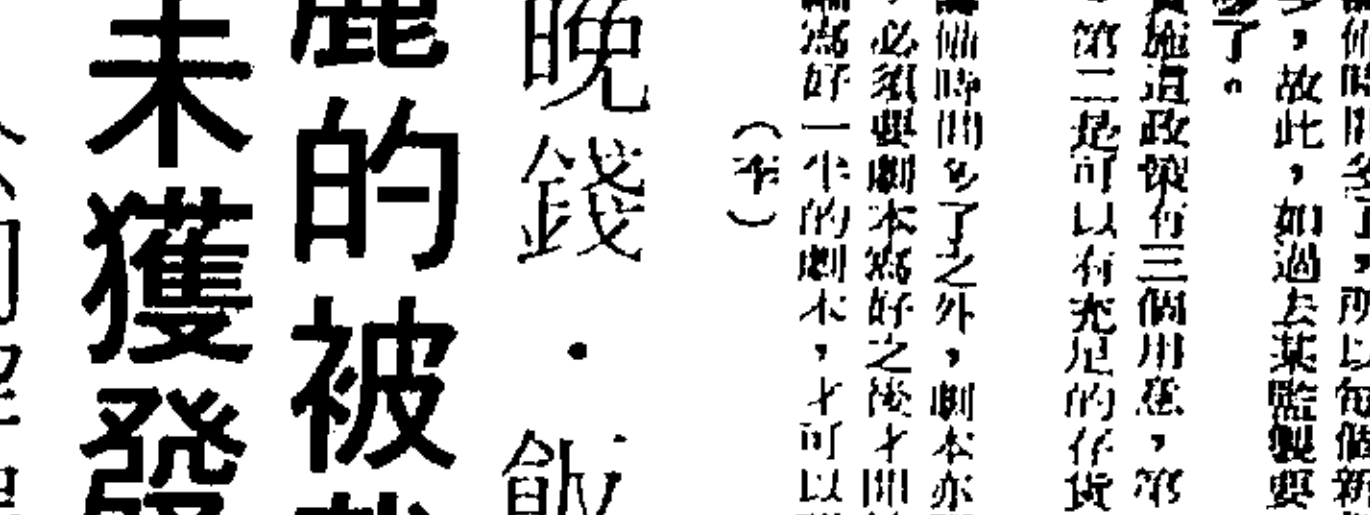 備時間多了,所以每個新
多,故此,如過去某監製要
多了。
實施這政策有三個用意,第
。第二是可以有充足的存貨
備時間多了之外,劇本亦
,必須要劇本寫好之後才開
編寫好一半的劇本,才可以
(平)
晚錢·飯
麗的被
未獲發